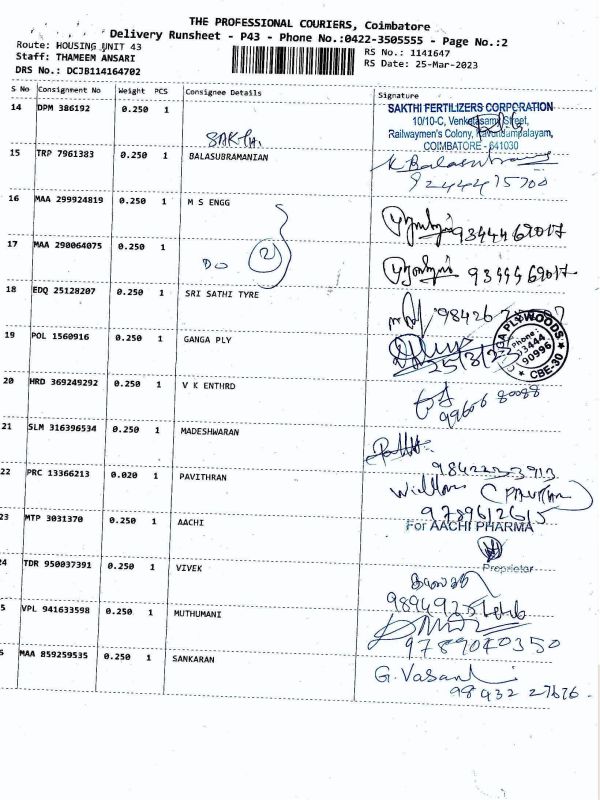 THE PROFESSIONAL COURIERS, Coimbatore
Delivery Runsheet - P43 - Phone No.:0422-3505555 - Page No.:2
Route: HOUSING UNIT 43
RS No.: 1141647
Staff: THAMEEM ANSARI
RS Date: 25-Mar-2023
DRS No.: DCJB114164702
S No Consignment No Weight PCS Consignee Details Signature
14 DPM 386192 0.250 1
SAKTHI FERTILIZERS CORPORATION
10/10-C, Venkatasami Street,
Railwaymen's Colony, Kavundampalayam,
COIMBATORE - 641030
15 TRP 7961383 0.250 1 BALASUBRAMANIAN
K Balasubramani
16 MAA 299924819 0.250 1 M S ENGG
9344469017
17 MAA 290064075 0.250 1
Do 2
9344469017
18 EDQ 25128207 0.250 1 SRI SATHI TYRE
19 POL 1560916 0.250 1 GANGA PLY
25/3/23
PLYWOODS
Phone:
93444
90996
CBE-30
20 HRD 369249292 0.250 1 V K ENTHRD
99656 80088
21 SLM 316396534 0.250 1 MADESHWARAN
22 PRC 13366213 0.020 1 PAVITHRAN
9789612615
23 MTP 3031370 0.250 1 AACHI
For AACHI PHARMA
Proprietor
24 TDR 950037391 0.250 1 VIVEK
5 VPL 941633598 0.250 1 MUTHUMANI
9789040350
6 MAA 859259535 0.250 1 SANKARAN
G. Vasan
98432 27676